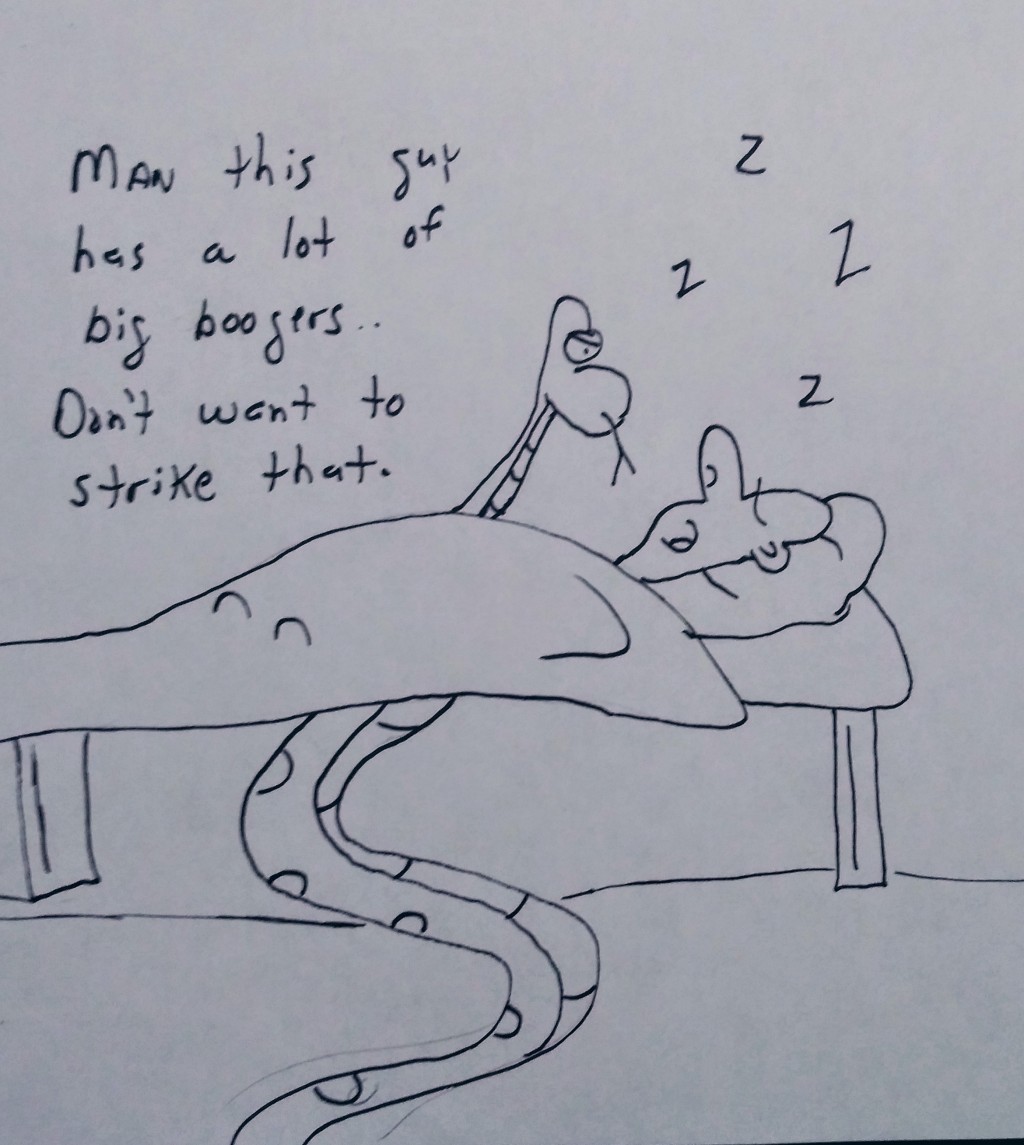 MAN this guy
has a lot of
big boogers..
Don't want to
strike that.
Z
Z
Z
Z